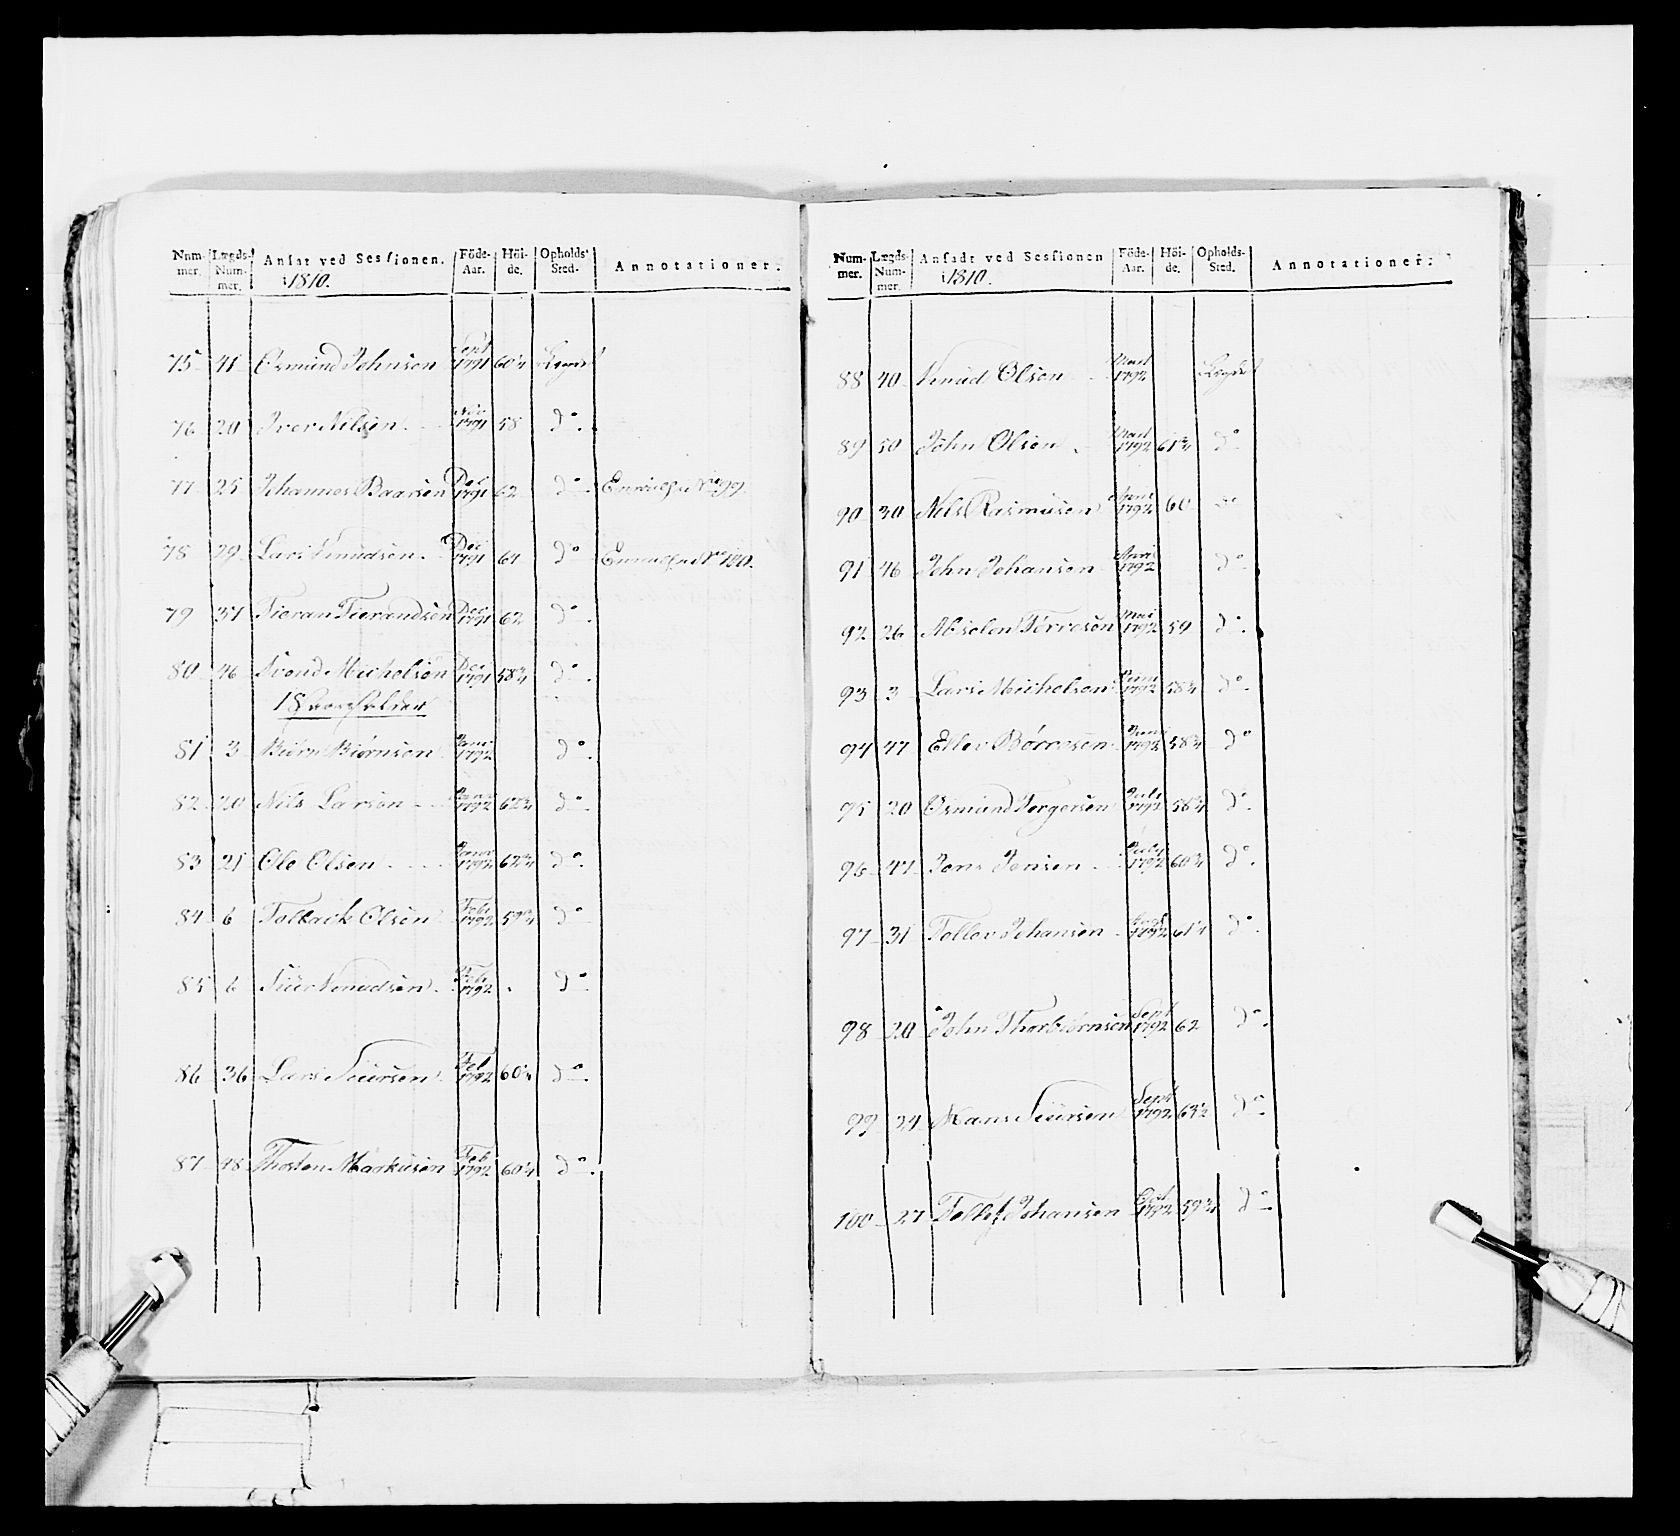 Num-mer. Lægds-Num-mer. Ansat ved Sessionen. i 1810. Föde-Aar. Höi-de. Opholds-Sted. Annotationer.
75 41 Osmund Johnsen Sept 1791 60¼ Lægdet
76 20 Iver Nilsen Nov 1791 58 do
77 25 Johannes Baarsen Dec 1791 62 do No 99.
78 29 Lars Knudsen Dec 1791 64 do
79 37 Tieran Tierandsen Dec 1791 62 do
80 46 Svend Michelsen Dec 1791 58¾ do
18
81 3 Biørn Biørnsen 1792 do
82 20 Nils Larsen 1792 62¾ do
83 21 Ole Olsen 1792 62¾ do
84 6 Tollack Olsen Feb 1792 59¾ do
85 6 Siur Knudsen Feb 1792 do
86 36 Lars Siursen Feb 1792 60¼ do
87 48 Thosten Markusen Feb 1792 60¼ do
Num-mer. Lægds-Num-mer. Ansadt ved Sessionen i 1810. Föde-Aar. Höi-de. Opholds-Sted. Annotationer.
88 40 Knud Olsen Mart 1792 Lægdet
89 50 John Olsen Mart 1792 61¾ do
90 30 Nils Rasmusen 1792 60 do
91 46 John Johansen 1792 do
92 26 Abselon Torresen Mai 1792 59 do
93 3 Lars Michelsen 1792 58¾ do
94 47 Ellev Børresen Juni 1792 58¾ do
95 20 Osmund Torgersen Juli 1792 58¾ do
96 47 Jens Jensen July 1792 60¾ do
97 31 Tollev Johansen 1792 61¼ do
98 20 John Thorbiørnsen Sept 1792 62 do
99 24 Mans Siursen Sept 1792 63½ do
100 27 Tollef Johansen Oct 1792 59¾ do